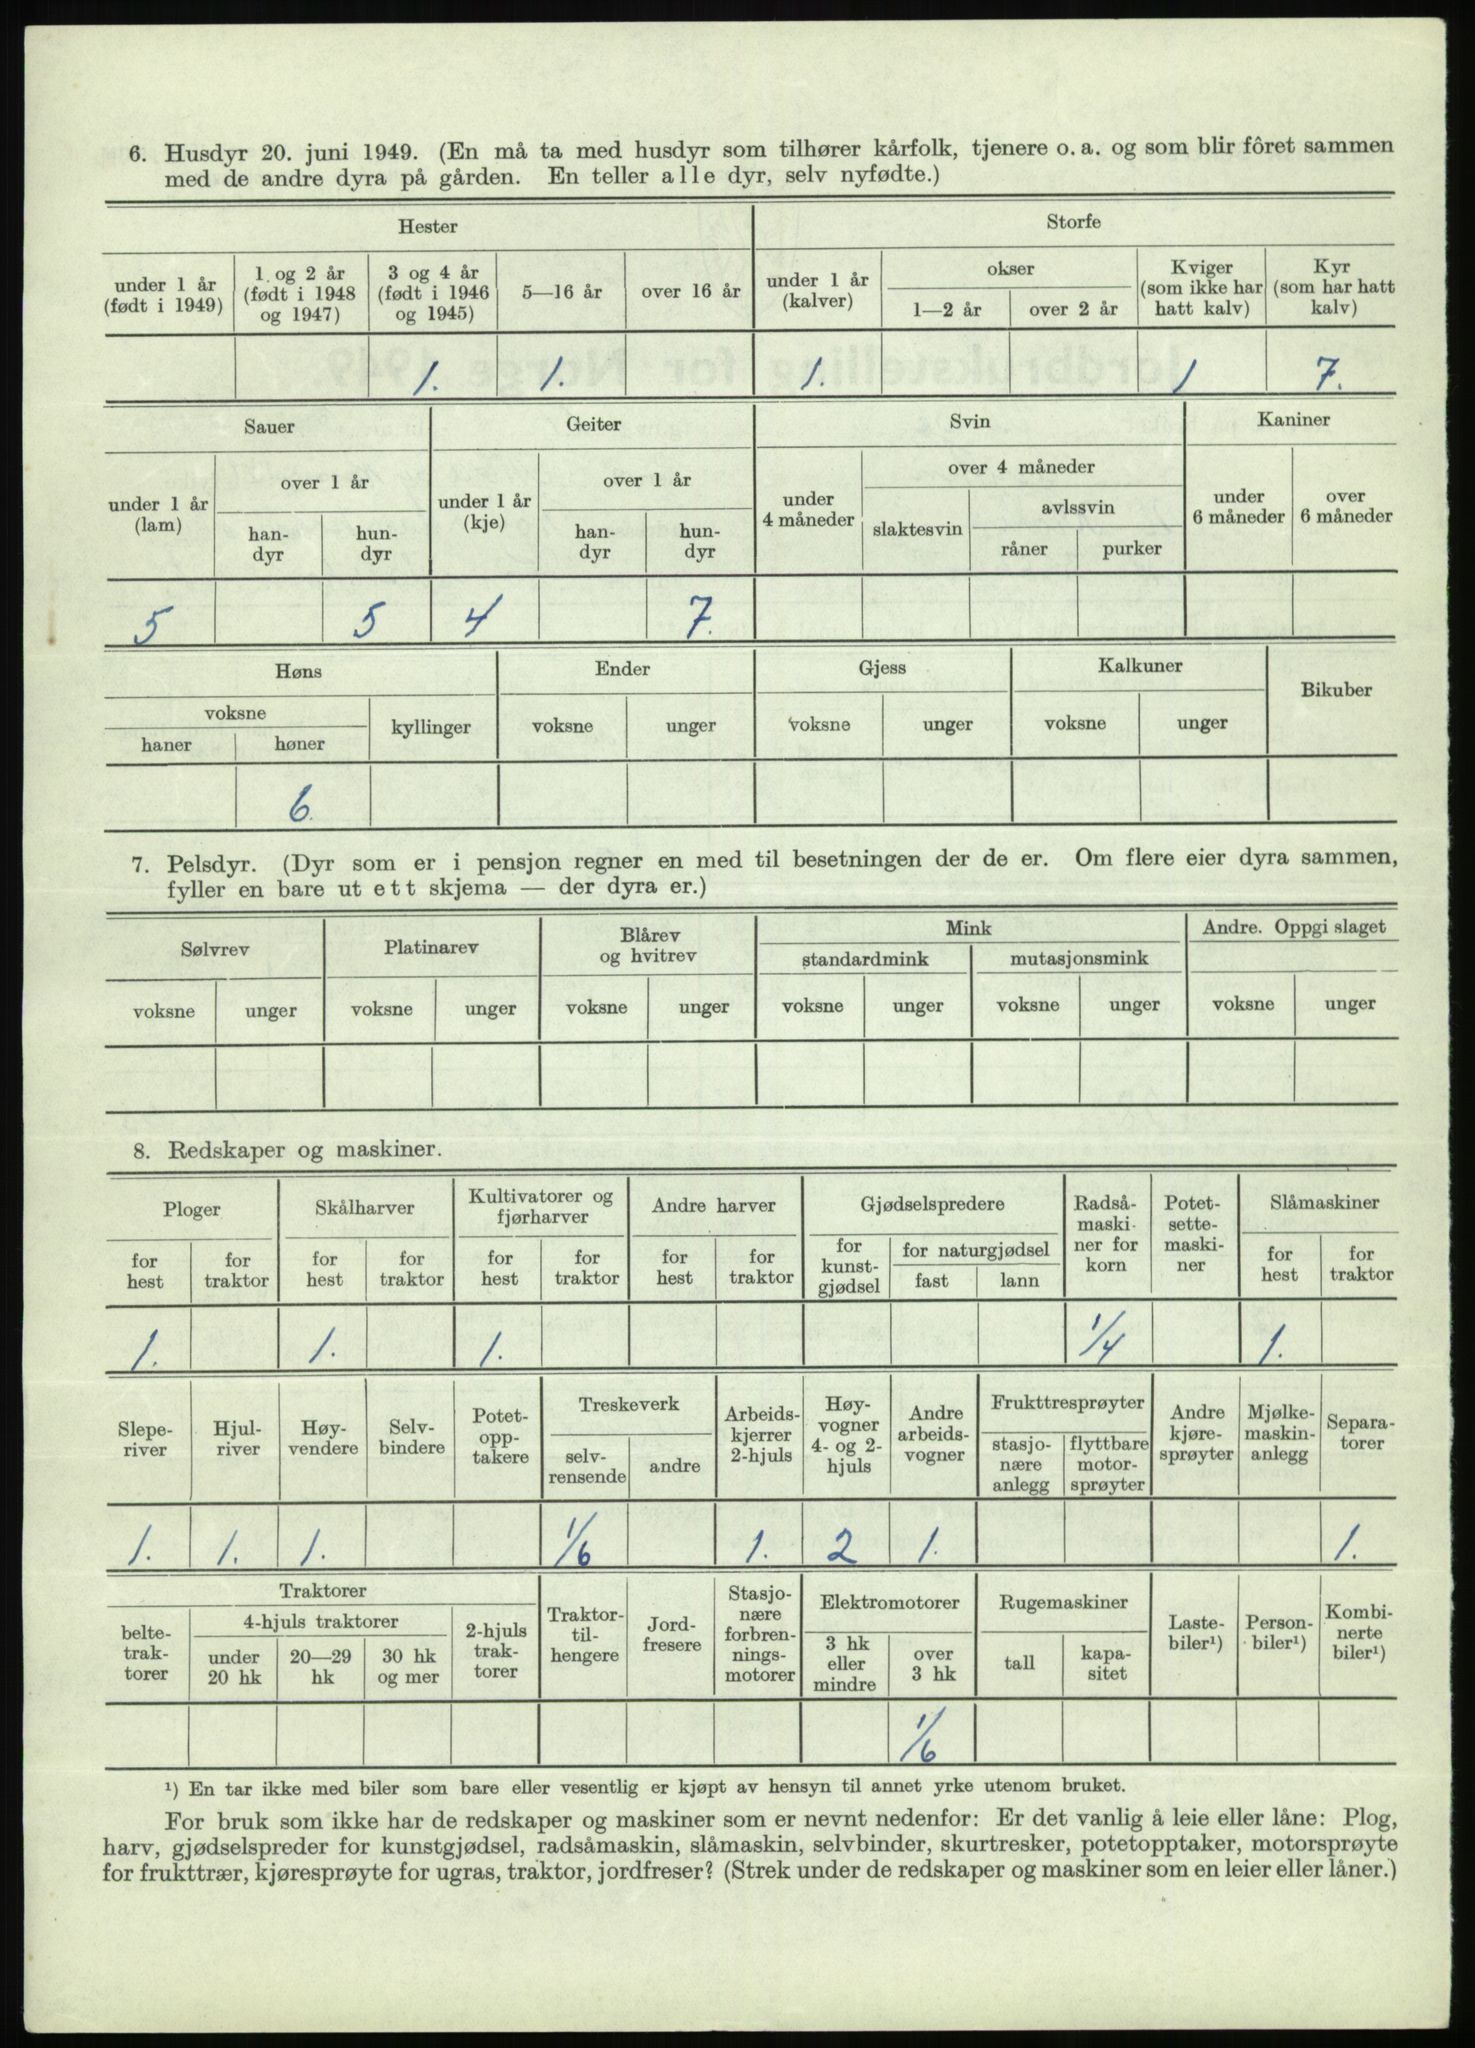 6. Husdyr 20. juni 1949. (En må ta med husdyr som tilhører kårfolk, tjenere o. a. og som blir fôret sammen
med de andre dyra på gården. En teller alle dyr, selv nyfødte.)
Hester
Storfe
under 1 år (født i 1949)
1 og 2 år (født i 1948 og 1947)
3 og 4 år (født i 1946 og 1945)
5—16 år
over 16 år
under 1 år (kalver)
okser
1—2 år
over 2 år
Kviger (som ikke har hatt kalv)
Kyr (som har hatt kalv)
1. 1. 1. 1 7.
Sauer
Geiter
Svin
Kaniner
under 1 år (lam)
over 1 år
han-dyr
hun-dyr
under 1 år (kje)
over 1 år
han-dyr
hun-dyr
under 4 måneder
over 4 måneder
slaktesvin
avlssvin
råner
purker
under 6 måneder
over 6 måneder
5 5 4 7.
Høns
Ender
Gjess
Kalkuner
Bikuber
voksne
haner
høner
kyllinger
voksne
unger
voksne
unger
voksne
unger
6.
7. Pelsdyr. (Dyr som er i pensjon regner en med til besetningen der de er. Om flere eier dyra sammen,
fyller en bare ut ett skjema — der dyra er.)
Sølvrev
Platinarev
Blårev og hvitrev
Mink
standardmink
mutasjonsmink
Andre. Oppgi slaget
voksne unger voksne unger voksne unger voksne unger voksne unger voksne unger
8. Redskaper og maskiner.
Ploger
Skålharver
Kultivatorer og fjørharver
Andre harver
Gjødselspredere
Radså-maski-ner for korn
Potet-sette-maski-ner
Slåmaskiner
for hest
for traktor
for hest
for traktor
for hest
for traktor
for hest
for traktor
for kunst-gjødsel
for naturgjødsel
fast
lann
for hest
for traktor
1. 1. 1. 1/4 1.
Slepe-river
Hjul-river
Høy-vendere
Selv-bindere
Potet-opp-takere
Treskeverk
selv-rensende
andre
Arbeids-kjerrer 2-hjuls
Høy-vogner 4- og 2-hjuls
Andre arbeids-vogner
Frukttresprøyter
stasjo-nære anlegg
flyttbare motor-sprøyter
Andre kjøre-sprøyter
Mjølke-maskin-anlegg
Separa-torer
1. 1. 1. 1/6 1. 2 1. 1.
Traktorer
belte-trak-torer
4-hjuls traktorer
under 20 hk
20—29 hk
30 hk og mer
2-hjuls trak-torer
Traktor-til-hengere
Jord-fresere
Stasjo-nære forbren-nings-motorer
Elektromotorer
3 hk eller mindre
over 3 hk
Rugemaskiner
tall
kapa-sitet
Laste-biler¹)
Person-biler¹)
Kombi-nerte biler¹)
1/6
¹) En tar ikke med biler som bare eller vesentlig er kjøpt av hensyn til annet yrke utenom bruket.
For bruk som ikke har de redskaper og maskiner som er nevnt nedenfor: Er det vanlig å leie eller låne: Plog,
harv, gjødselspreder for kunstgjødsel, radsåmaskin, slåmaskin, selvbinder, skurtresker, potetopptaker, motorsprøyte
for frukttrær, kjøresprøyte for ugras, traktor, jordfreser? (Strek under de redskaper og maskiner som en leier eller låner.)